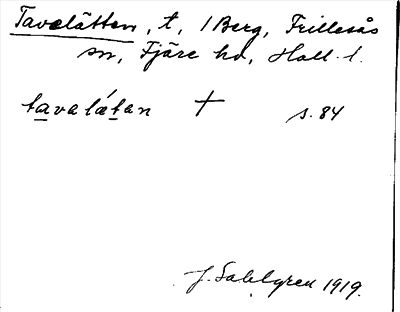 Tavelätten, t, i Berg, Frillesås
sn, Fjäre hd, Hall. l.
tavalǽtan † s. 84
J. Sahlgren 1919.